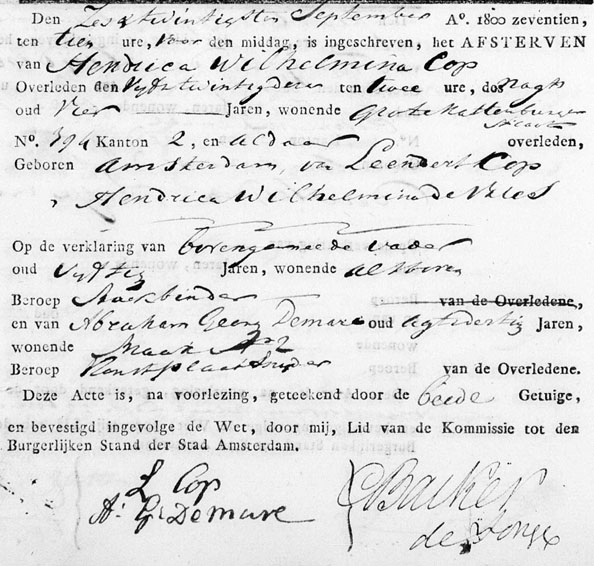 Den Zes & twintigsten September A°. 1800 zeventien,
ten tien ure, voor den middag, is ingeschreven, het AFSTERVEN
van Hendrica Wilhelmina Cop
Overleden den vyf & twintig dezer ten twee ure, des nagts
oud Vier Jaren, wonende Grote Kattenburger
Straat
N°. 394 Kanton 2, en aldaar overleden,
Geboren Amsterdam, van Leendert Cop
& Hendrica Wilhelmina de Vries
Op de verklaring van bovengemeede vader
oud vyftig Jaren, wonende als boven
Beroep Boekbinder van de Overledene,
en van Abraham Georg Demare oud agt & dertig Jaren,
wonende
Beroep Konstplaatsnyder van de Overledene.
Deze Acte is, na voorlezing, geteekend door de beede Getuige,
en bevestigd ingevolge de Wet, door mij, Lid van de Kommissie tot den
Burgerlijken Stand der Stad Amsterdam.
L Cop
A: G: Demare
Backer
de Jonge